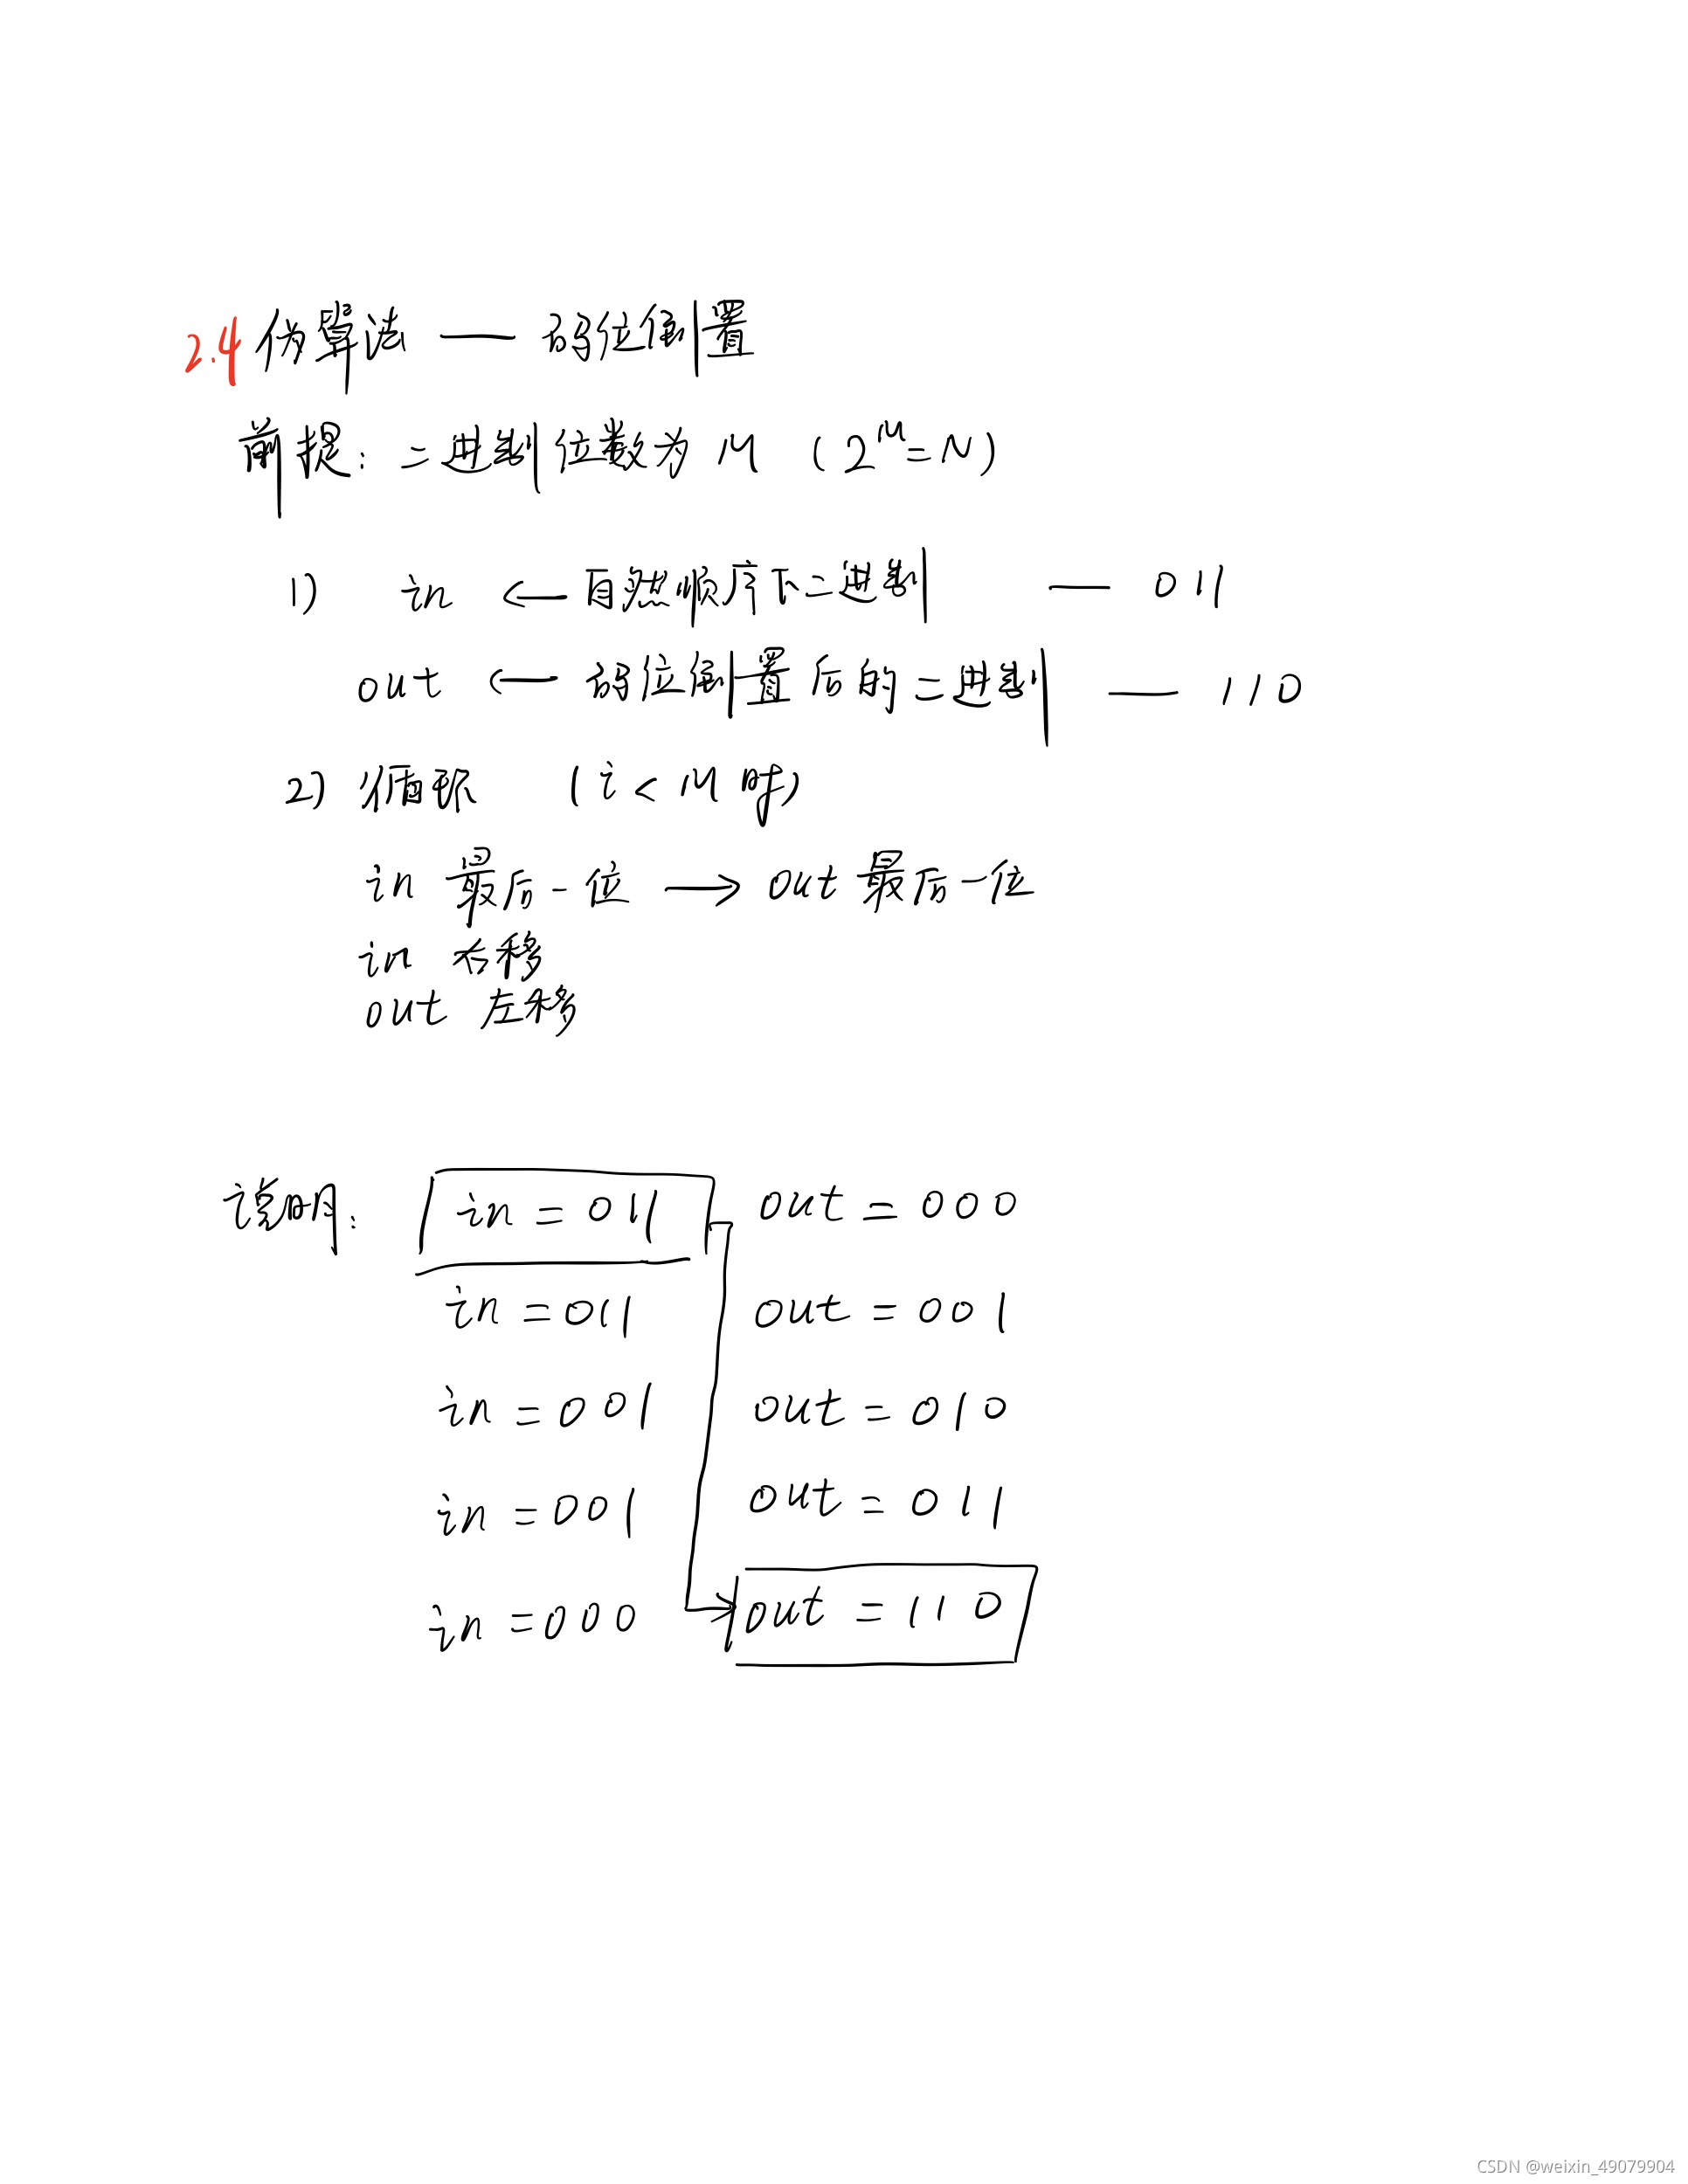 2.4 伪算法 — 码位倒置
前提: 二进制位数为 M (2^M = N)
1) in ← 自然顺序下二进制 — 011
out ← 码位倒置后的二进制 — 110
2) 循环 (i < M 时)
in 最后一位 → out 最后一位
in 右移
out 左移
说明: in = 011 out = 000
in = 011 out = 001
in = 001 out = 010
in = 001 out = 011
in = 000 out = 110
CSDN @weixin_49079904